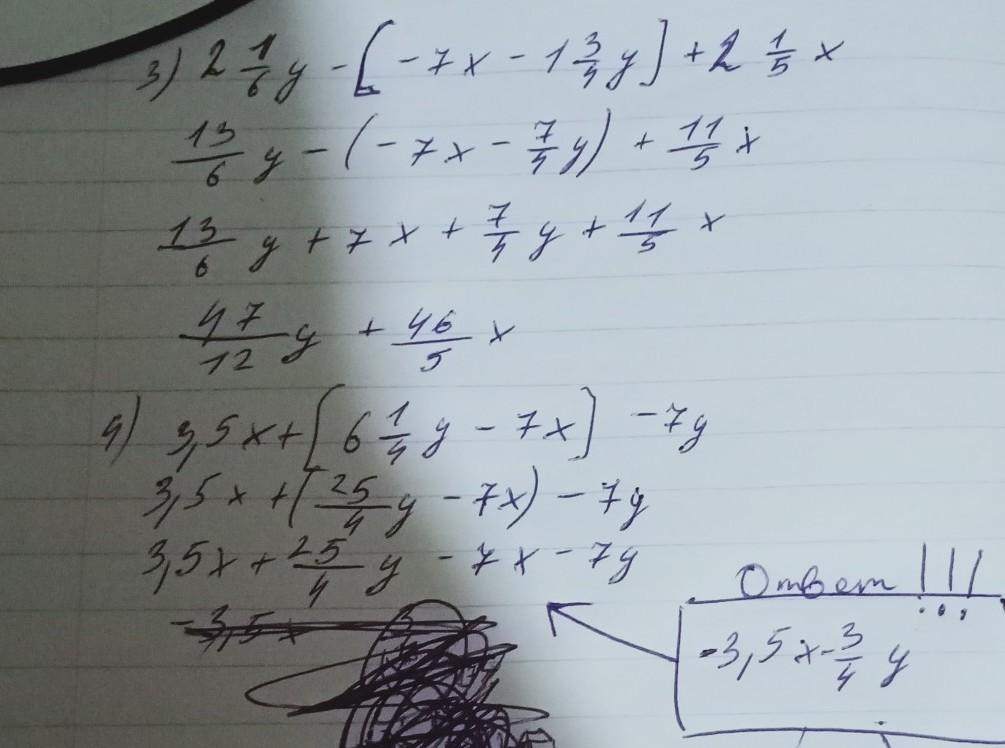 3) 2 1/6 y - [- 7x - 1 3/4 y] + 2 1/5 x
13/6 y - (- 7x - 7/4 y) + 11/5 x
13/6 y + 7x + 7/4 y + 11/5 x
47/12 y + 46/5 x
4) 3,5x + [6 1/4 y - 7x] - 7y
3,5x + (25/4 y - 7x) - 7y
3,5x + 25/4 y - 7x - 7y
-3,5x
Ответ !!!
-3,5x - 3/4 y